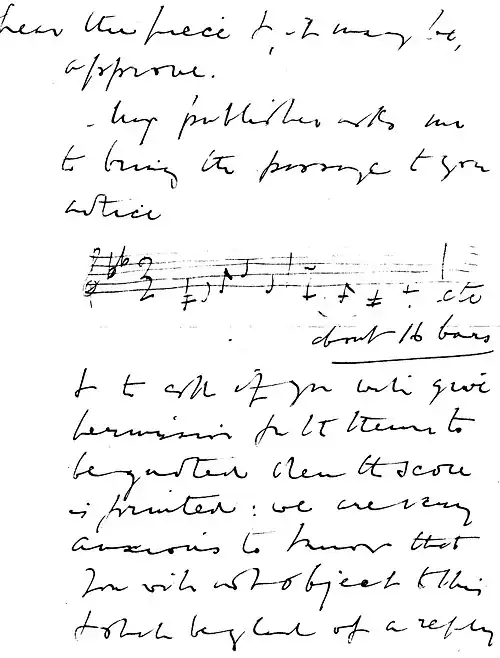 hear the piece &, it may be,
approve.
- My publisher asks me
to bring the passage to your
notice
etc
about 16 bars
& to ask if you will give
permission for the theme to
be quoted when the score
is printed: we are very
anxious to know that
you will not object to this
& shall be glad of a reply